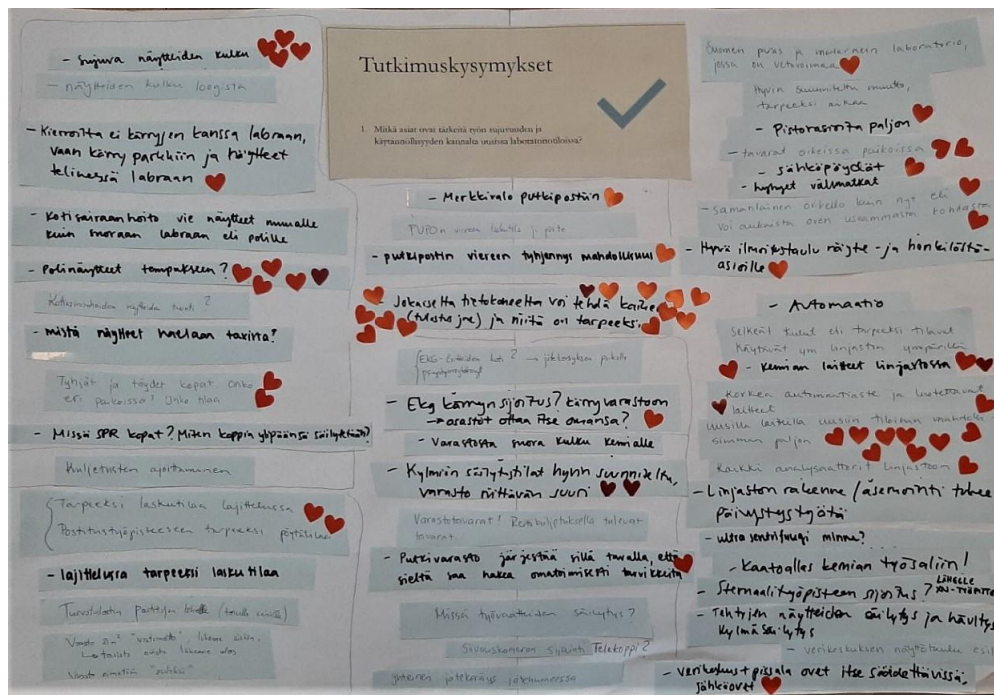 - Sujuva näytteiden kulku
- näytteiden kulku loogista
- Kierroilta ei kärryjen kanssa labraan,
vaan kärry parkkiin ja näytteet
telineessä labraan
- Kotisairaanhoito vie näytteet muualle
kuin suoraan labraan eli polille
- Polinäytteet tempukseen?
- mistä näytteet haetaan taxista?
Tyhjät ja täydet kopat onko
eri paikoissa? Onko tilaa
- Missä SPR kopat? Miten koppia ylipäänsä säilytetään?
Kuljetusten ajoittaminen
Tarpeeksi laskutilaa lajittelussa
Postitustyöpisteeseen tarpeeksi pöytätilaa
- lajittelussa tarpeeksi laskutilaa
Tutkimuskysymykset
1. Mitkä asiat ovat tärkeitä työn sujuvuuden ja
käytännöllisyyden kannalta uusissa laboratoriotiloissa?
- Merkkivalo putkipostiin
- putkipostin viereen tyhjennys mahdollisuus
- Jokaiselta tietokoneelta voi tehdä kaikkea
(tulostus jne) ja niitä on tarpeeksi
- Ekg kärryn sijoitus? kärryvarastoon
→ osastot ottaa itse omansa?
- Varastosta suora kulku kemialle
- Kylmiin säilytystilat hyvin suunniteltu,
varasto riittävän suuri
Varastotavarat? tulevat
tavarat.
- Putkivarasto järjestää sillä tavalla, että
sieltä saa hakea omatoimisesti tarvikkeita
Missä työvaatteiden säilytys?
Siivouskomeron sijainti Telekoppi?
yhteinen jätekeräys jätehuoneessa
Suomen paras ja modernein laboratorio,
jossa on vetovoimaa
Hyvin suunniteltu muutto,
tarpeeksi aikaa
- Pistorasioita paljon
- tavarat oikeissa paikoissa
- sähköpöydät
- lyhyet välimatkat
- samanlainen ovikello kuin nyt eli
voi aukaista oven useammasta kohdasta
- Hyvä ilmoitustaulu näyte- ja henkilöstö-
asioille
- Automaatio
Selkeät kulut eli tarpeeksi tilavat
käytävät ym linjaston ympärillä
- Kemian laitteet linjastossa
Korkea automaatioaste ja luotettavat
laitteet
uusilla laitteilla uusiin tiloihin mahdolli-
simman paljon
Kaikki analysaattorit linjastoon
- Linjaston rakenne / asemointi tukee
päivystystyötä
- ultrasentrifuugi minne?
- Kaatoallas kemian työsaliin!
- Sternaalityöpisteen sijoitus?
- Tehtyjen näytteiden säilytys ja hävitys
Kylmäsäilytys
- verikeskuksen näyttötaulu esil
- verikeskus + pissala ovet itse säädettävissä,
sähköovet